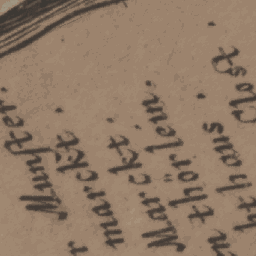 Munster.
r marckt.
marckt.
Marckt
n thörlein.
thaus
Clost